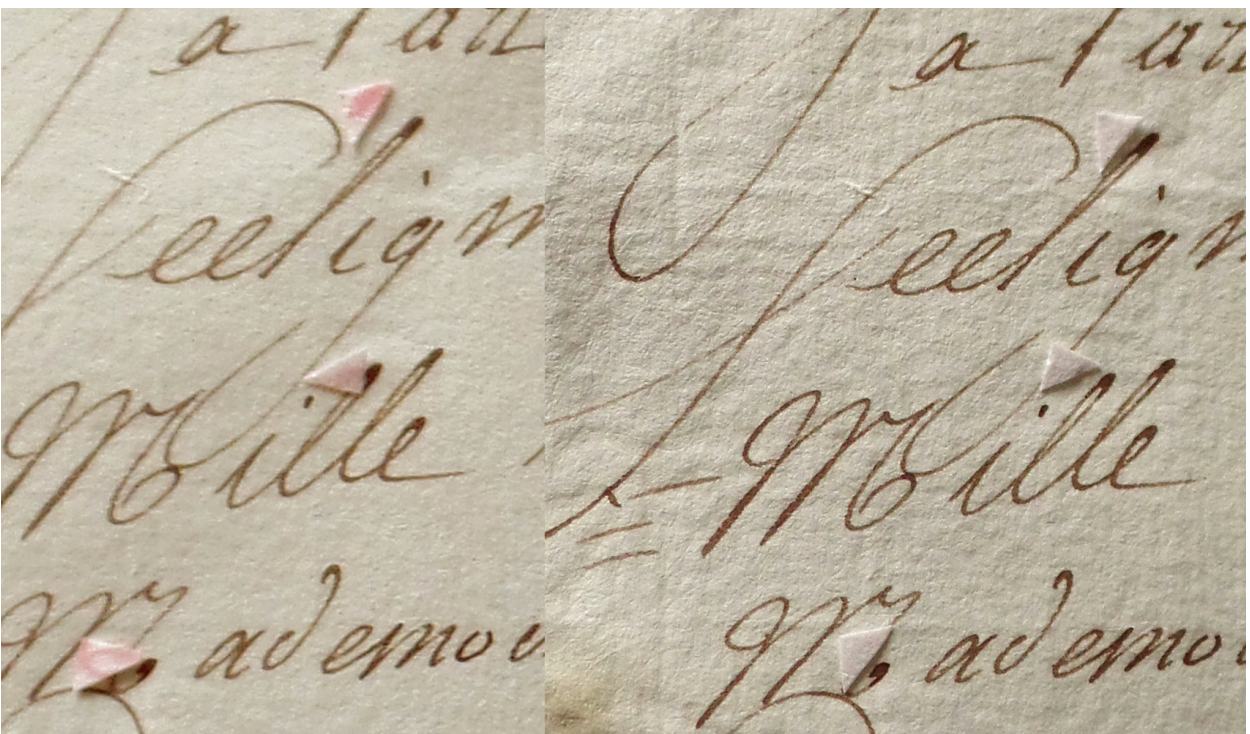 a l'an
Seeligm
Mille
Mademoi
a l'an
Seelign
Mille
Mademo